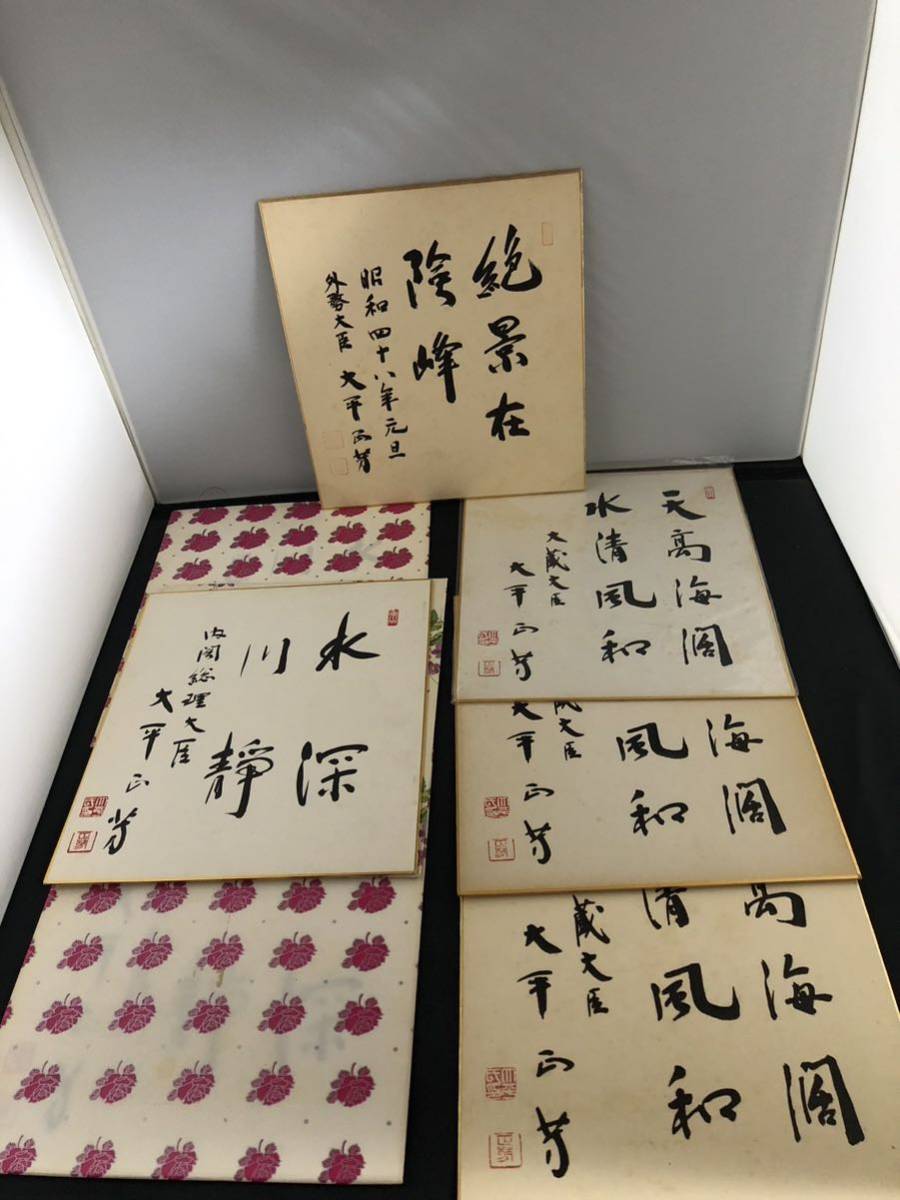 絶景在
陰峰
昭和四十八年元旦
外務大臣 大平正芳
天高海濶
水清風和
大蔵大臣
大平正芳
水深
川静
内閣総理大臣
大平正芳
海濶
風和
蔵大臣
大平正芳
高海濶
清風和
蔵大臣
大平正芳